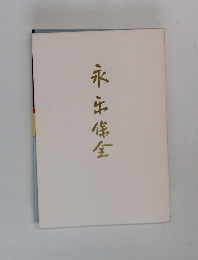 永乐保全